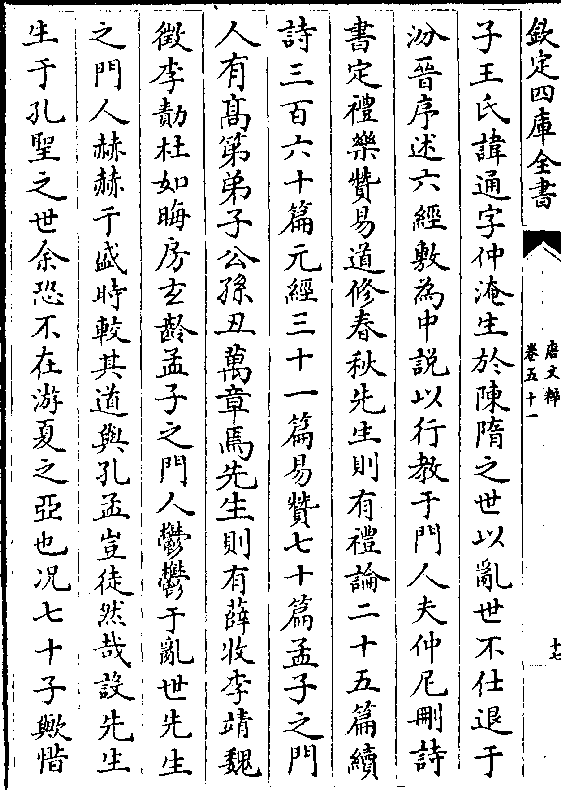 欽定四庫全書
唐文粹
卷五十一
十七
子王氏諱通字仲淹生於陳隋之世以亂世不仕退于
汾晉序述六經敷為中說以行教于門人夫仲尼刪詩
書定禮樂贊易道修春秋先生則有禮論二十五篇續
詩三百六十篇元經三十一篇易贊七十篇孟子之門
人有高第弟子公孫丑萬章焉先生則有薛收李靖魏
徵李勣杜如晦房玄齡孟子之門人鬱鬱于亂世先生
之門人赫赫于盛時較其道與孔孟豈徒然哉設先生
生于孔聖之世余恐不在游夏之亞也况七十子歟惜